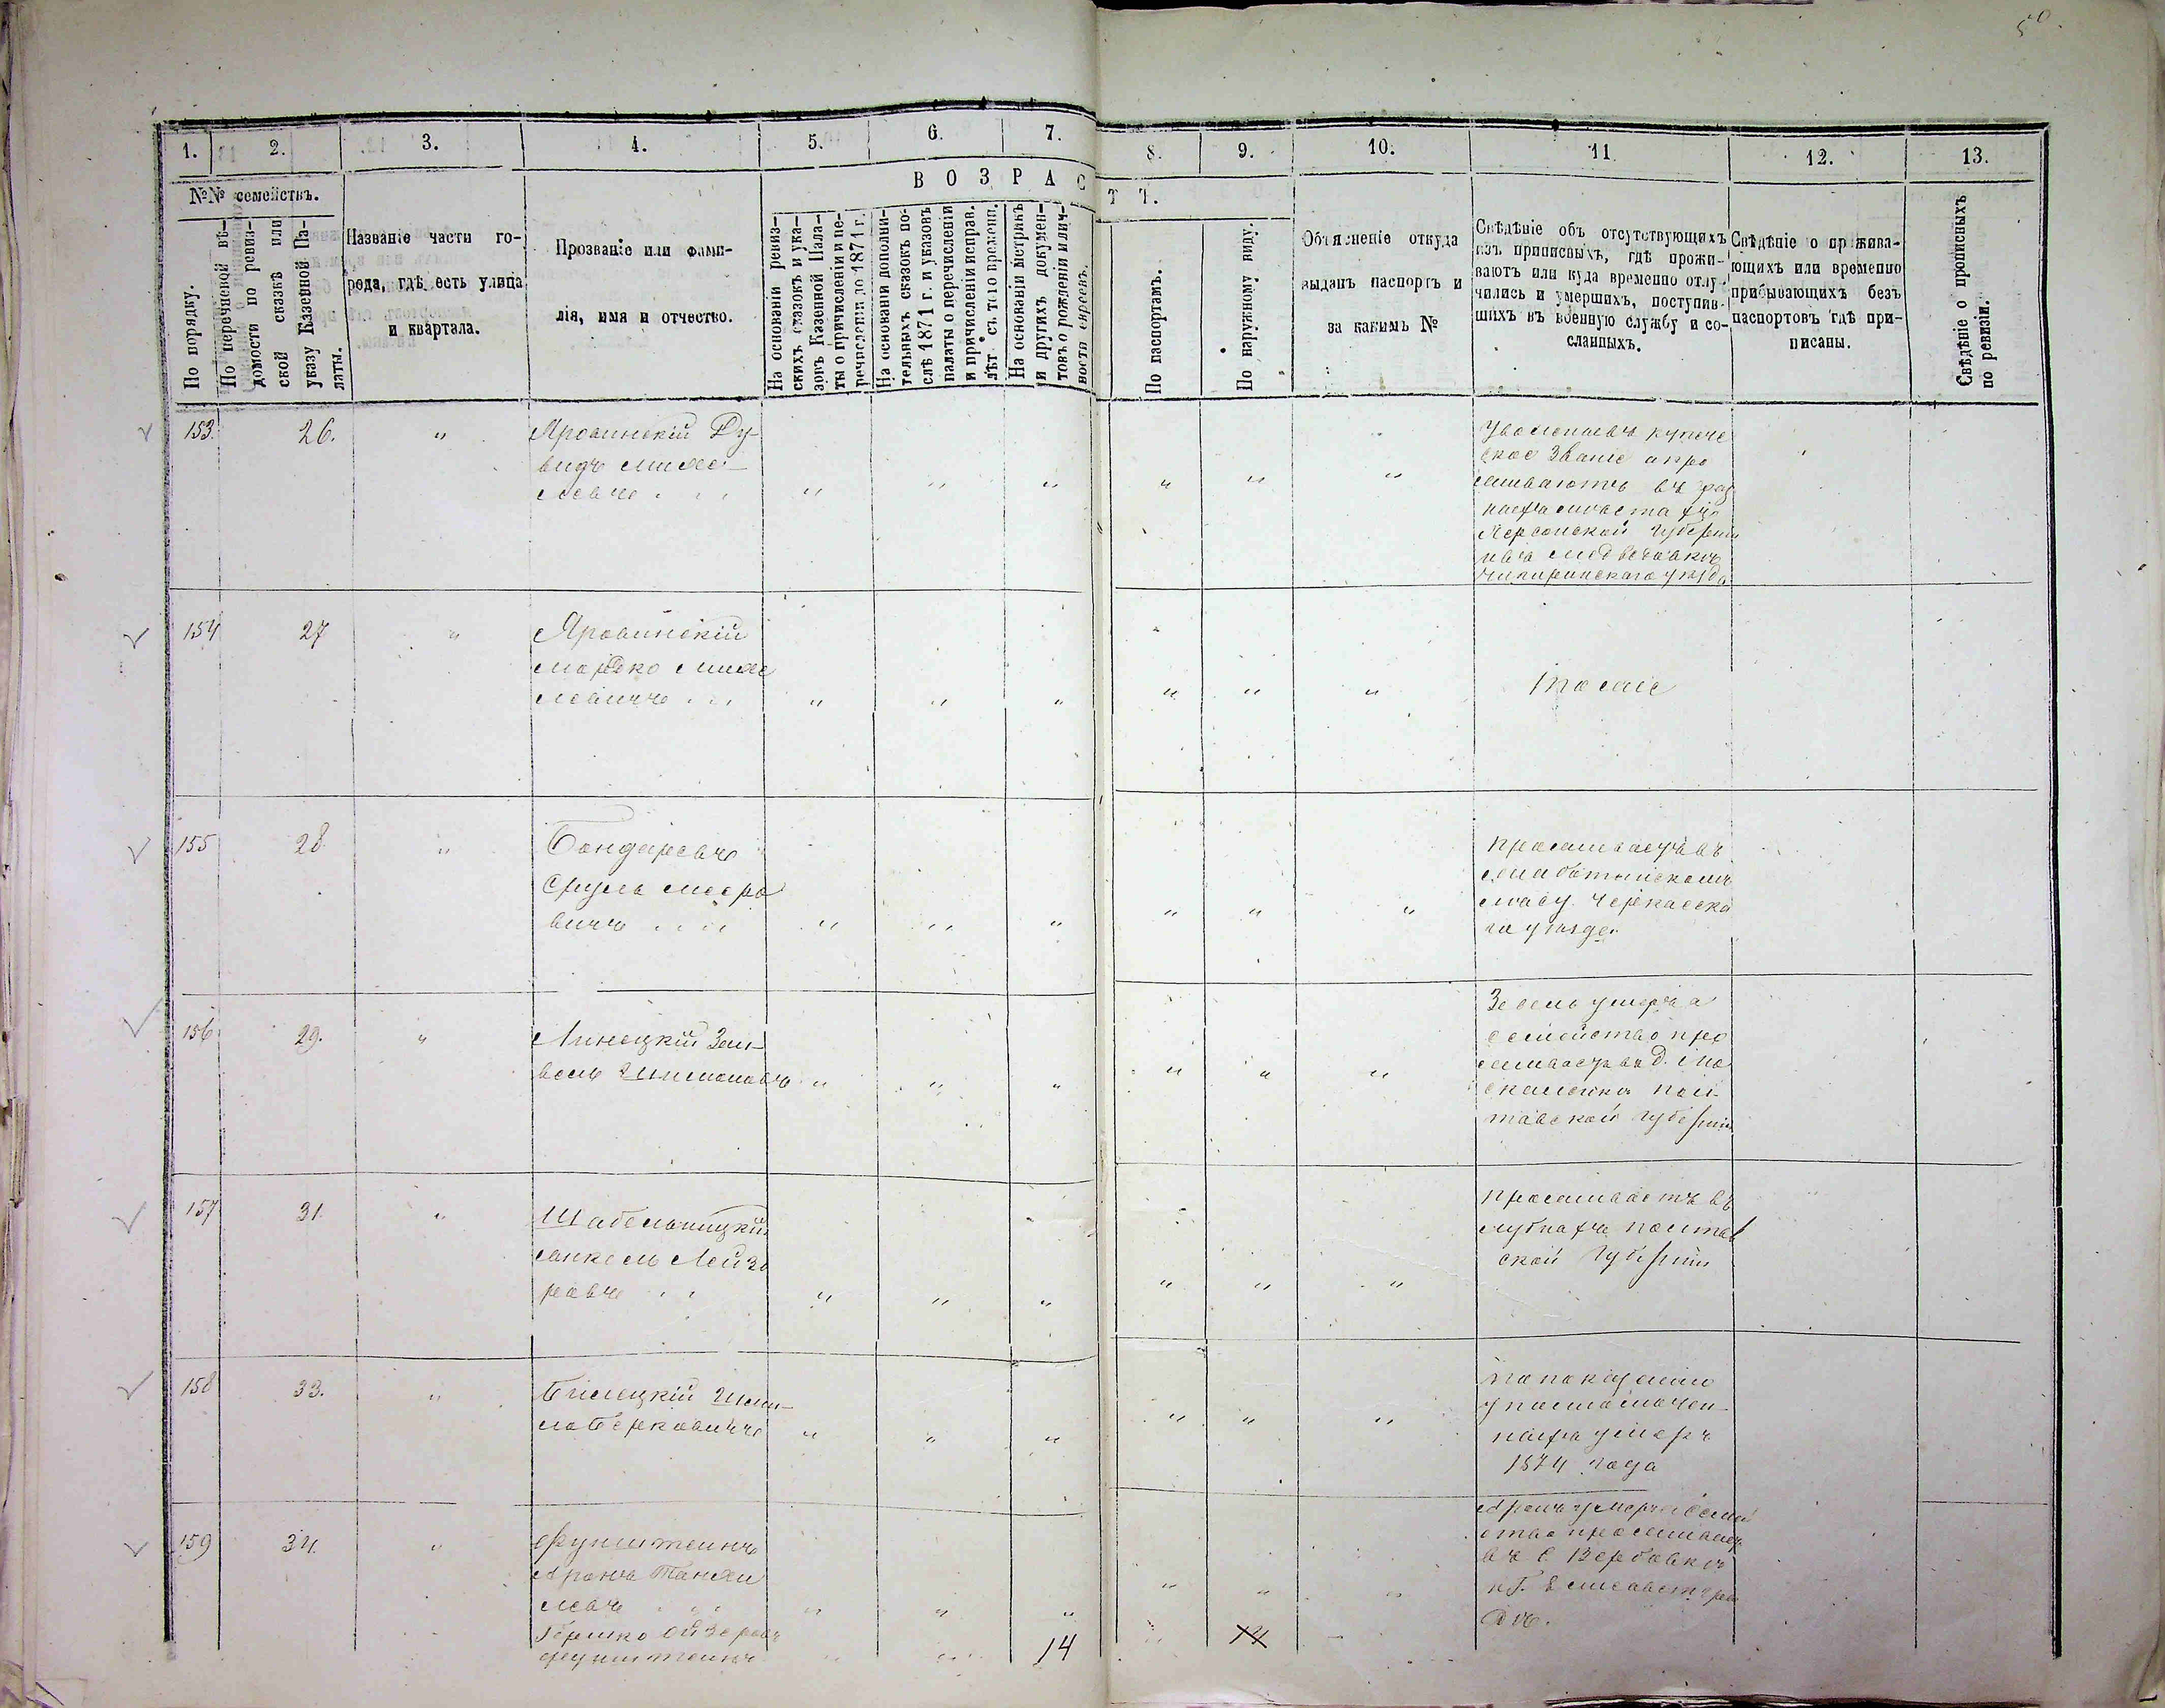 50.
1. 2. 3. 4. 5. 6. 7. 8. 9. 10. 11. 12. 13.
№№ семействъ.
ВОЗРАСТЪ.
По порядку.
По перечневой вѣ-
домости по ревиз-
ской сказкѣ или
указу Казенной Па-
латы.
Названіе части го-
рода, гдѣ есть улица
и квартала.
Прозваніе или фами-
лія, имя и отчество.
На основаніи ревиз-
скихъ сказокъ и ука-
зовъ Казенной Пала-
ты о причисленіи и пе-
речисленіи до 1871 г.
На основаніи дополни-
тельныхъ сказокъ по-
слѣ 1871 г. и указовъ
палаты о перечисленіи
и причисленіи исправ.
лѣт. съ того времени.
На основаніи метрикъ
и другихъ докумен-
товъ о рожденіи и лич-
ности евреевъ.
По паспортамъ.
По наружному виду.
Объясненіе откуда
выданъ паспортъ и
за какимъ №
Свѣдѣніе объ отсутствующихъ
изъ приписныхъ, гдѣ прожи-
ваютъ или куда временно отлу-
чились и умершихъ, поступив-
шихъ въ военную службу и со-
сланныхъ.
Свѣдѣніе о прожива-
ющихъ или временно
прибывающихъ безъ
паспортовъ гдѣ при-
писаны.
Свѣдѣніе о прописныхъ
по ревизіи.
153. 26. "
Яровинскій Ду-
видъ Михе-
левъ " " " " " "
купече
ское званіе а про
живаютъ въ раз
ныхъ мѣстахъ
Херсонской губерніи
и въ Медведовкѣ
Чигиринскаго уѣзда
154 27 "
Яровинскій
Мошко Михе
левичъ " " " " " "
Тоже
155 28 "
Бондаревъ
Сруль Мееро
вичъ " " " " " "
Проживаетъ въ
Матвѣ. Черкасска
го уѣзда
156 29. "
Линецкій Зей-
вель Шимоновъ " " " " " "
Зевель умеръ а
семейство про
живаетъ въ Д. Мо
Пол-
тавской губерніи
157 31. "
Шабельницкій
Янкель Лейзо
ровъ " " " " " "
Проживаетъ въ
Лубнахъ Полтав
ской губерніи
158 33. "
Билецкій Шми-
ло Берковичъ " " " " " "
По показанію
уполномочен-
ныхъ умеръ
1874 года
159 34. "
Функштейнъ
Аронъ Танхи
левъ " " " " " "
Аронъ умеръ а семей
ство проживаетъ
въ С Вербовкѣ
и Г. Елисаветгра
дѣ.
Гершко Ойзеровъ
Функштейнъ " " 14 " 14